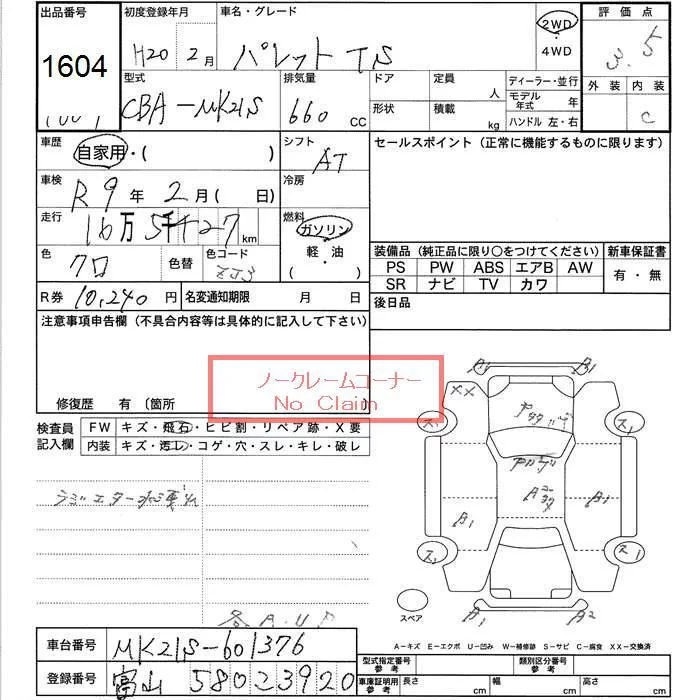 出品番号 初度登録年月 車名・グレード 2WD・4WD 評価点
1604 H20 2月 パレット TS 3.5
外装 内装
C
型式 排気量 ドア 定員 人 ディーラー・並行
CBA-MK21S 660 cc 形状 積載 kg モデル年式 年
ハンドル 左・右
車歴 シフト セールスポイント(正常に機能するものに限ります)
自家用・( ) AT
車検 冷房
R9年2月( 日)
走行 燃料
16万5千27km ガソリン
軽・油
( )
色 色替 色コード
クロ ZJ3
装備品(純正品に限り○をつけてください) 新車保証書
PS PW ABS エアB AW 有・無
SR ナビ TV カワ
R券 10,240円 名変通知期限 月 日 後日品
注意事項申告欄(不具合内容等は具体的に記入して下さい)
ノークレームコーナー
No Claim
修復歴 有〔箇所
検査員記入欄 FW キズ・飛石・ヒビ割・リペア跡・X要
内装 キズ・汚レ・コゲ・穴・スレ・キレ・破レ
A1 B1
XX
B1 B1
スペア
A1 A2
A-キズ E-エクボ U-凹み W-補修跡 S-サビ C-腐食 XX-交換済
車台番号 MK21S-601376
登録番号 富山 580 こ 3920
型式指定番号 参考 類別区分番号 参考
車庫証明用 参考 長さ cm 幅 cm 高さ cm